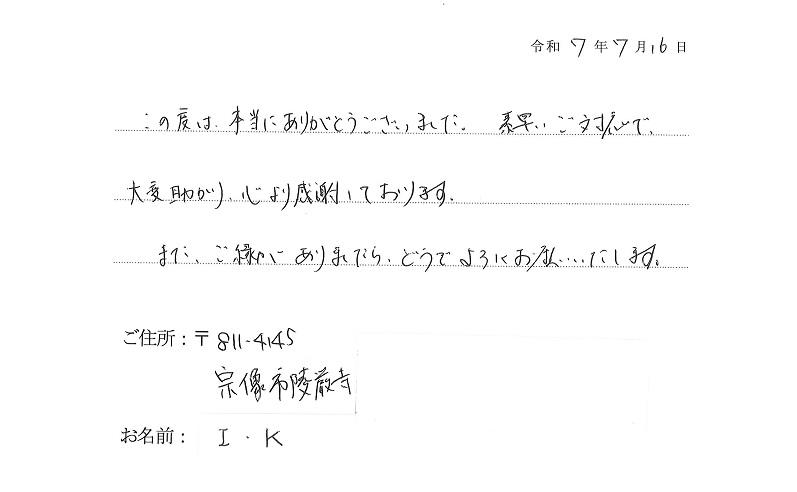 令和 7 年 7 月 16 日
この度は、本当にありがとうございました。 素早いご対応で、
大変助かり、心より感謝しております。
また、ご縁がありましたら、どうぞよろしくお願いいたします。
ご住所：〒811-4145
宗像市陵厳寺
お名前： I・K